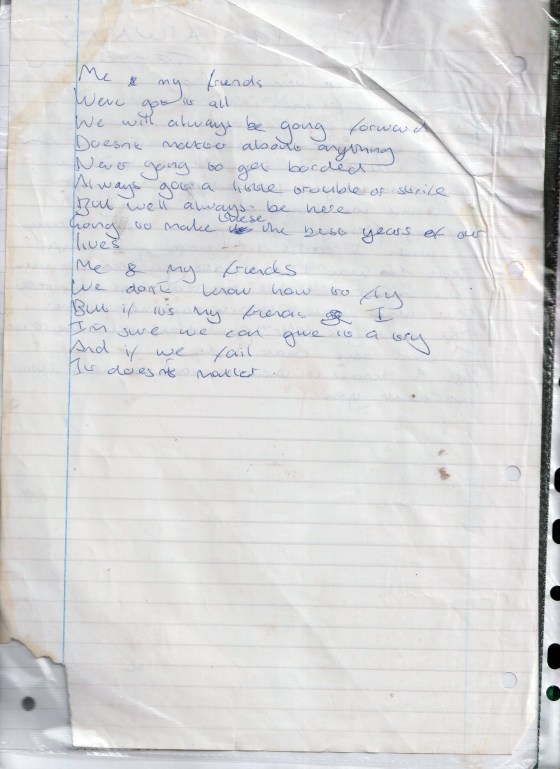 Me & my friends
Weve got it all
We will always be going forward
Doesnt matter about anything
Never going to get borded
Always got a little trouble or strife
But we'll always be here
Going to make these the best years of our
lives
Me & my friends
We dont know how to fly
But if its my friends & I
Im sure we can give it a try
And if we fail
It doesnt matter